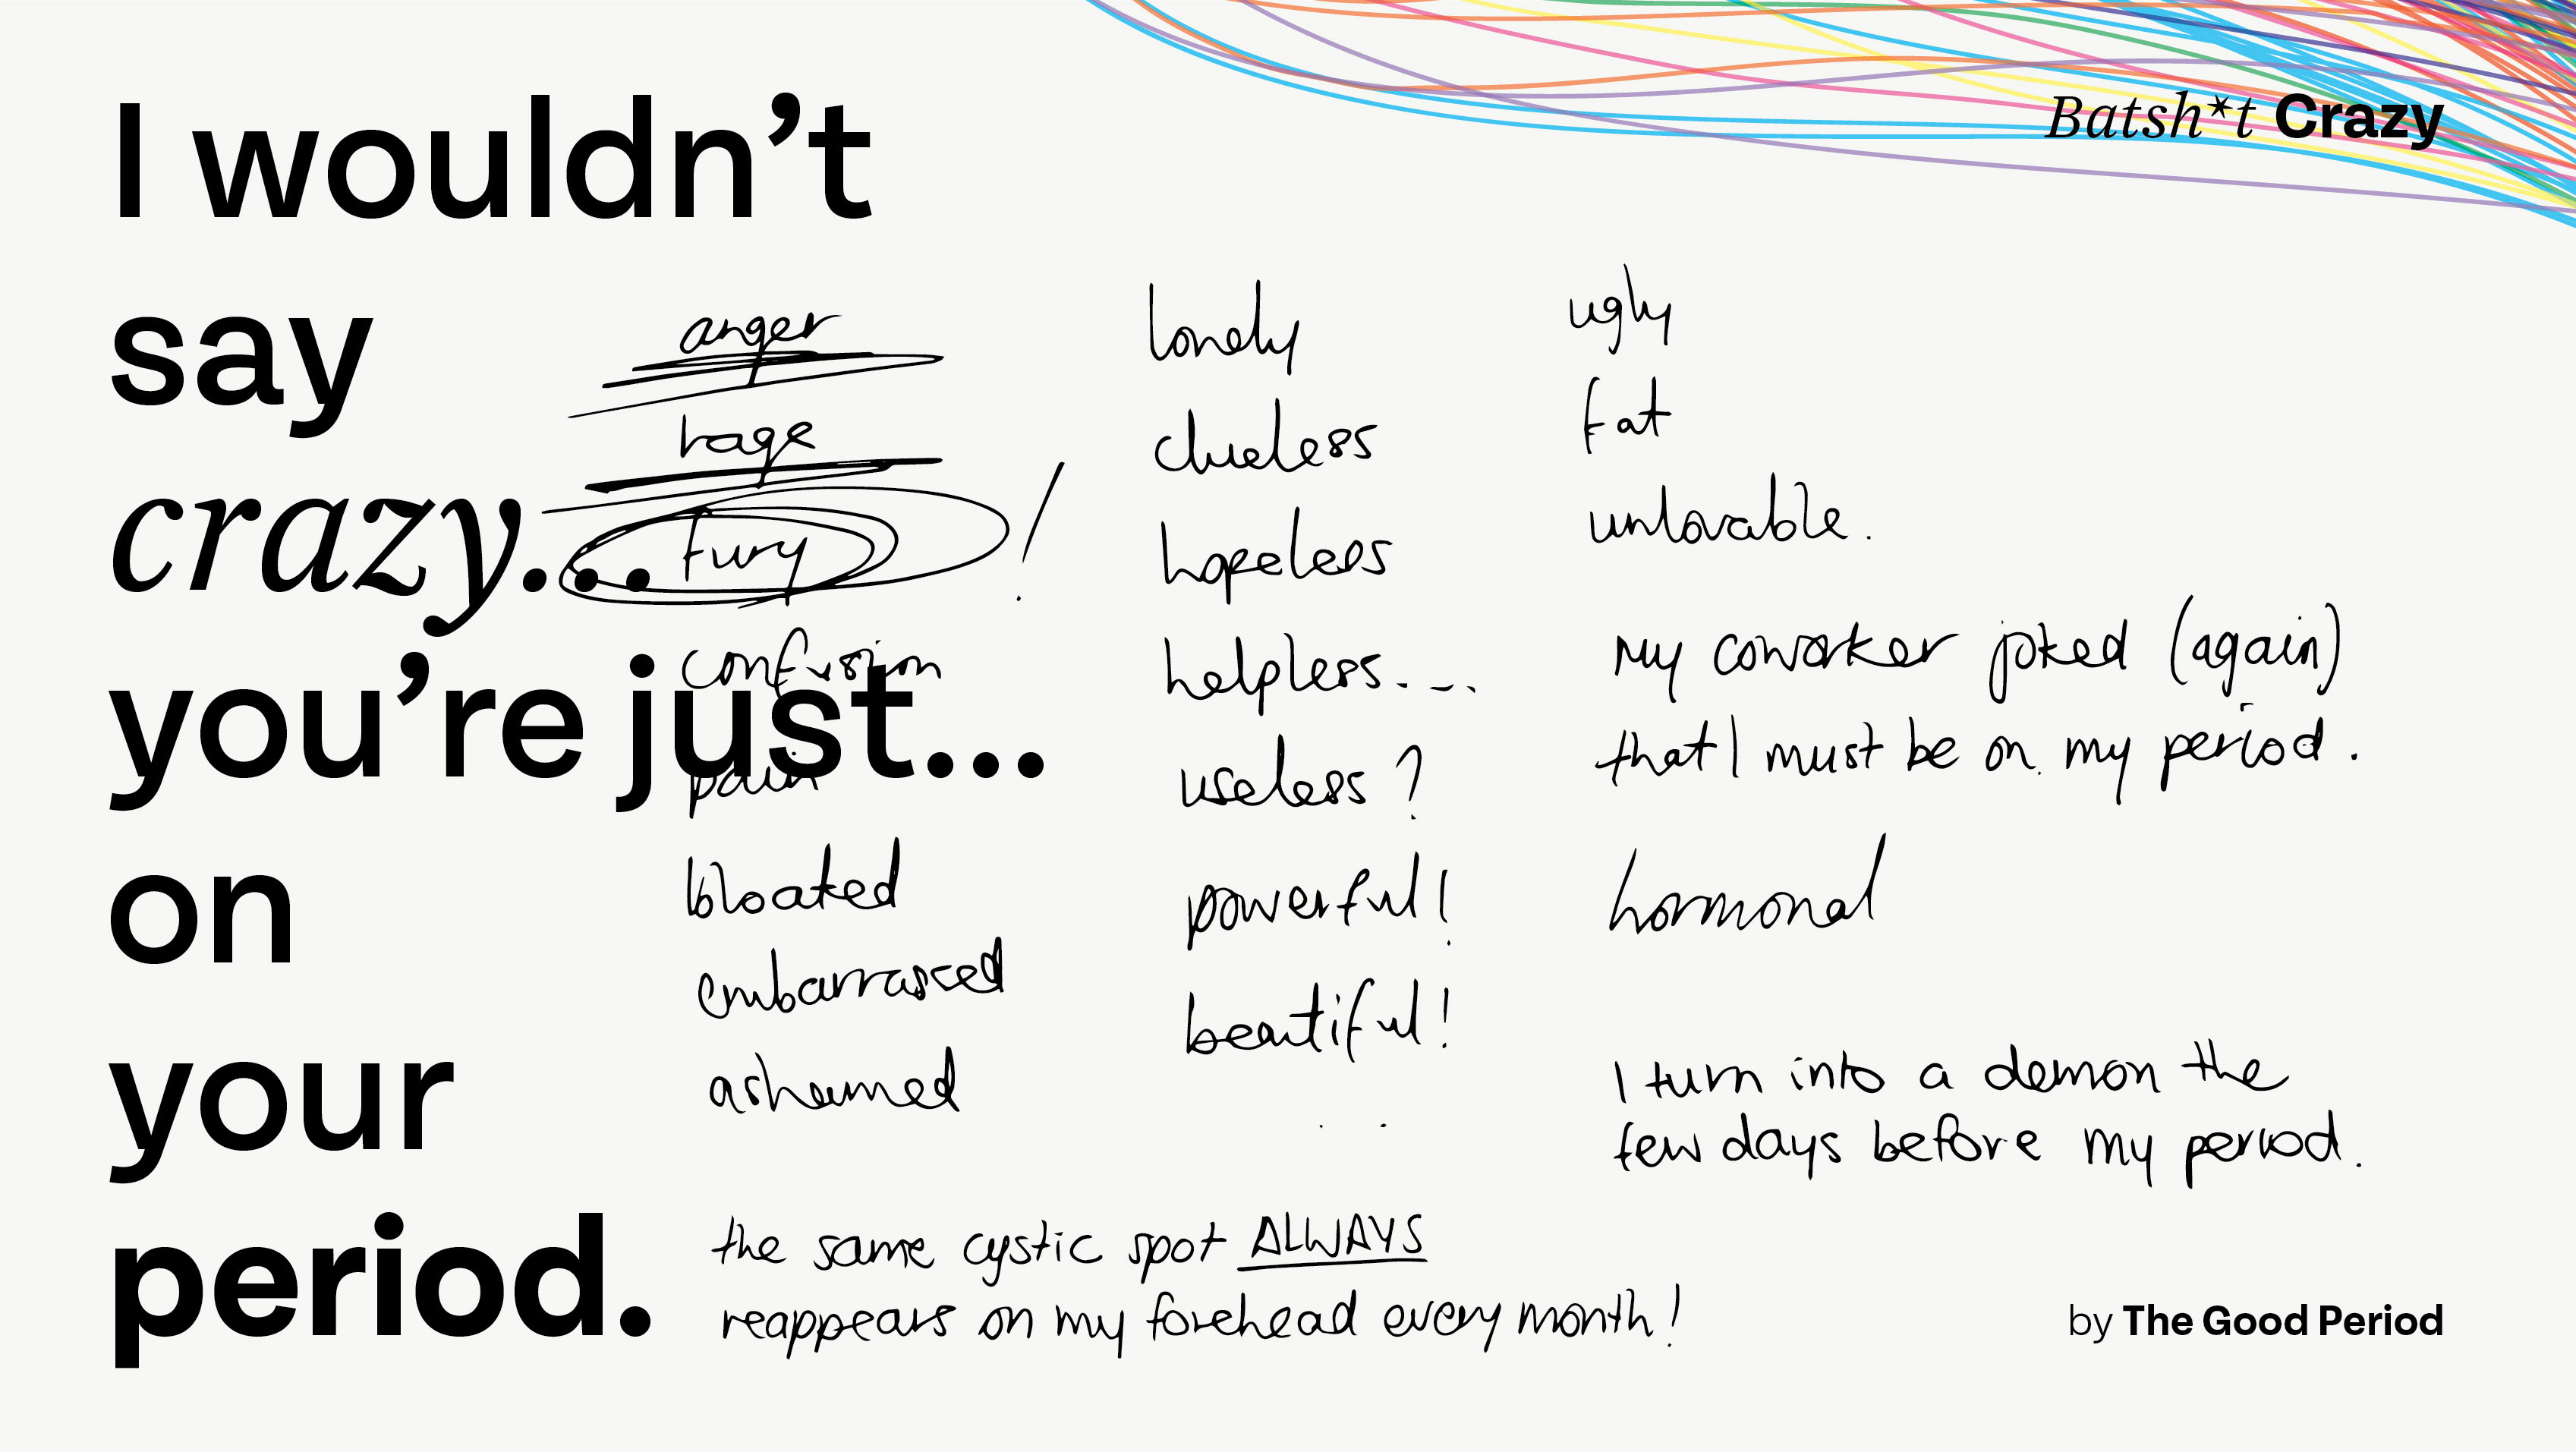 I wouldn't
say
crazy...
you're just...
on
your
period.
Batsh*t Crazy
anger
rage
fury !
confusion
pain
bloated
embarrassed
ashamed
lonely
clueless
hopeless
helpless...
useless ?
powerful!
beautiful!
ugly
fat
unlovable.
My coworker joked (again)
that I must be on my period.
hormonal
I turn into a demon the
few days before my period.
the same cystic spot ALWAYS
reappears on my forehead every month!
by The Good Period